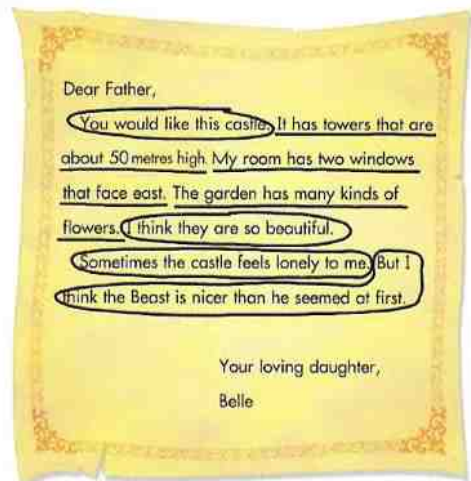 Dear Father,
You would like this castle. It has towers that are
about 50 metres high. My room has two windows
that face east. The garden has many kinds of
flowers. I think they are so beautiful.
Sometimes the castle feels lonely to me. But I
think the Beast is nicer than he seemed at first.
Your loving daughter,
Belle